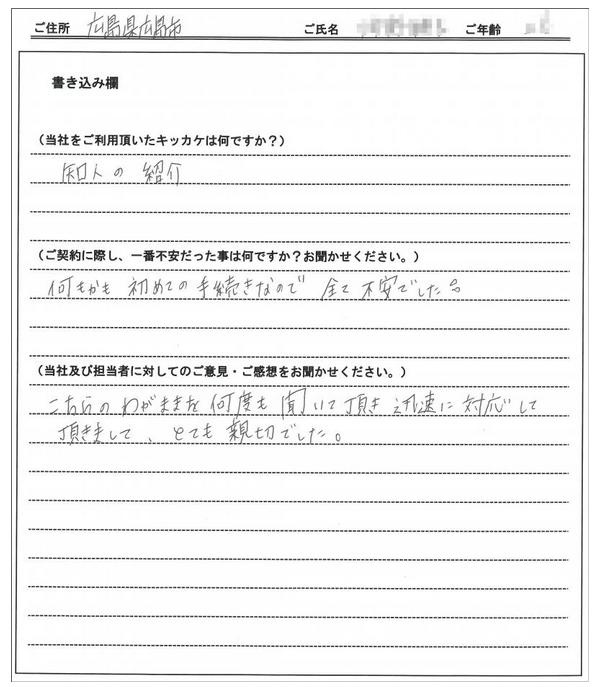 ご住所 広島県広島市 ご氏名 ご年齢
書き込み欄
（当社をご利用頂いたキッカケは何ですか？）
知人の紹介
（ご契約に際し、一番不安だった事は何ですか？お聞かせください。）
何もかも初めての手続きなので全て不安でした。
（当社及び担当者に対してのご意見・ご感想をお聞かせください。）
こちらのわがままを何度も聞いて頂き迅速に対応して
頂きまして、とても親切でした。